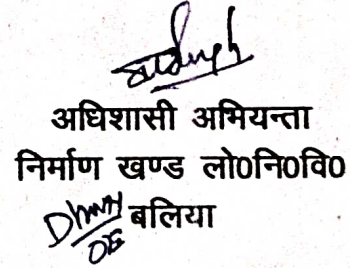 अधिशासी अभियन्ता
निर्माण खण्ड लो0नि0वि0
बलिया